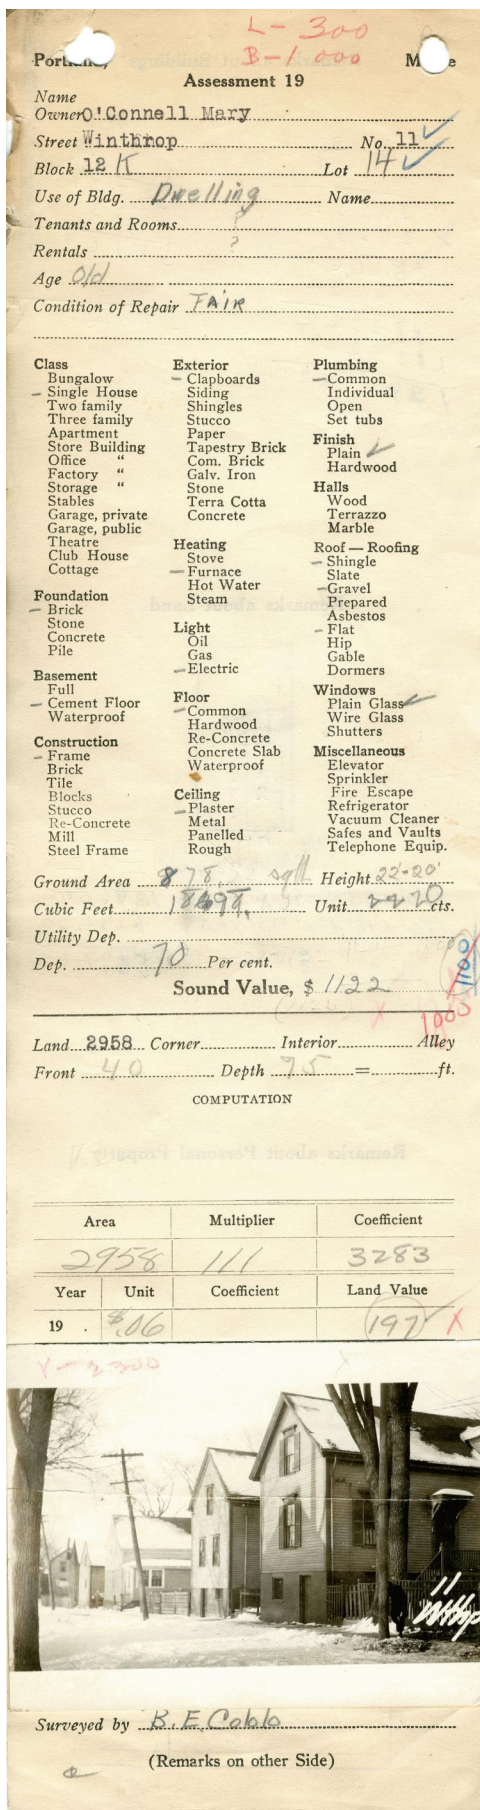 L - 300
B - 1000
Portland, M e
Assessment 19
Name
Owner O'Connell Mary
Street Winthrop No. 11
Block 12 K Lot 14
Use of Bldg. Dwelling Name
Tenants and Rooms ?
Rentals ?
Age Old
Condition of Repair FAIR
Class
Bungalow
Single House
Two family
Three family
Apartment
Store Building
Office "
Factory "
Storage "
Stables
Garage, private
Garage, public
Theatre
Club House
Cottage
Foundation
Brick
Stone
Concrete
Pile
Basement
Full
Cement Floor
Waterproof
Construction
Frame
Brick
Tile
Blocks
Stucco
Re-Concrete
Mill
Steel Frame
Exterior
Clapboards
Siding
Shingles
Stucco
Paper
Tapestry Brick
Com. Brick
Galv. Iron
Stone
Terra Cotta
Concrete
Heating
Stove
Furnace
Hot Water
Steam
Light
Oil
Gas
Electric
Floor
Common
Hardwood
Re-Concrete
Concrete Slab
Waterproof
Ceiling
Plaster
Metal
Panelled
Rough
Plumbing
Common
Individual
Open
Set tubs
Finish
Plain
Hardwood
Halls
Wood
Terrazzo
Marble
Roof — Roofing
Shingle
Slate
Gravel
Prepared
Asbestos
Flat
Hip
Gable
Dormers
Windows
Plain Glass
Wire Glass
Shutters
Miscellaneous
Elevator
Sprinkler
Fire Escape
Refrigerator
Vacuum Cleaner
Safes and Vaults
Telephone Equip.
Ground Area 878 sq ft Height 22'-20'
Cubic Feet Unit 20 cts.
Utility Dep.
Dep. 70 Per cent.
1100
Sound Value, $ 1122
1000
Land 2958 Corner Interior Alley
Front 40 Depth 75 = ft.
COMPUTATION
Area Multiplier Coefficient
2958 111 3283
Year Unit Coefficient Land Value
19 . $.06 197 X
11
Wthp
Surveyed by B. E. Cobb
(Remarks on other Side)